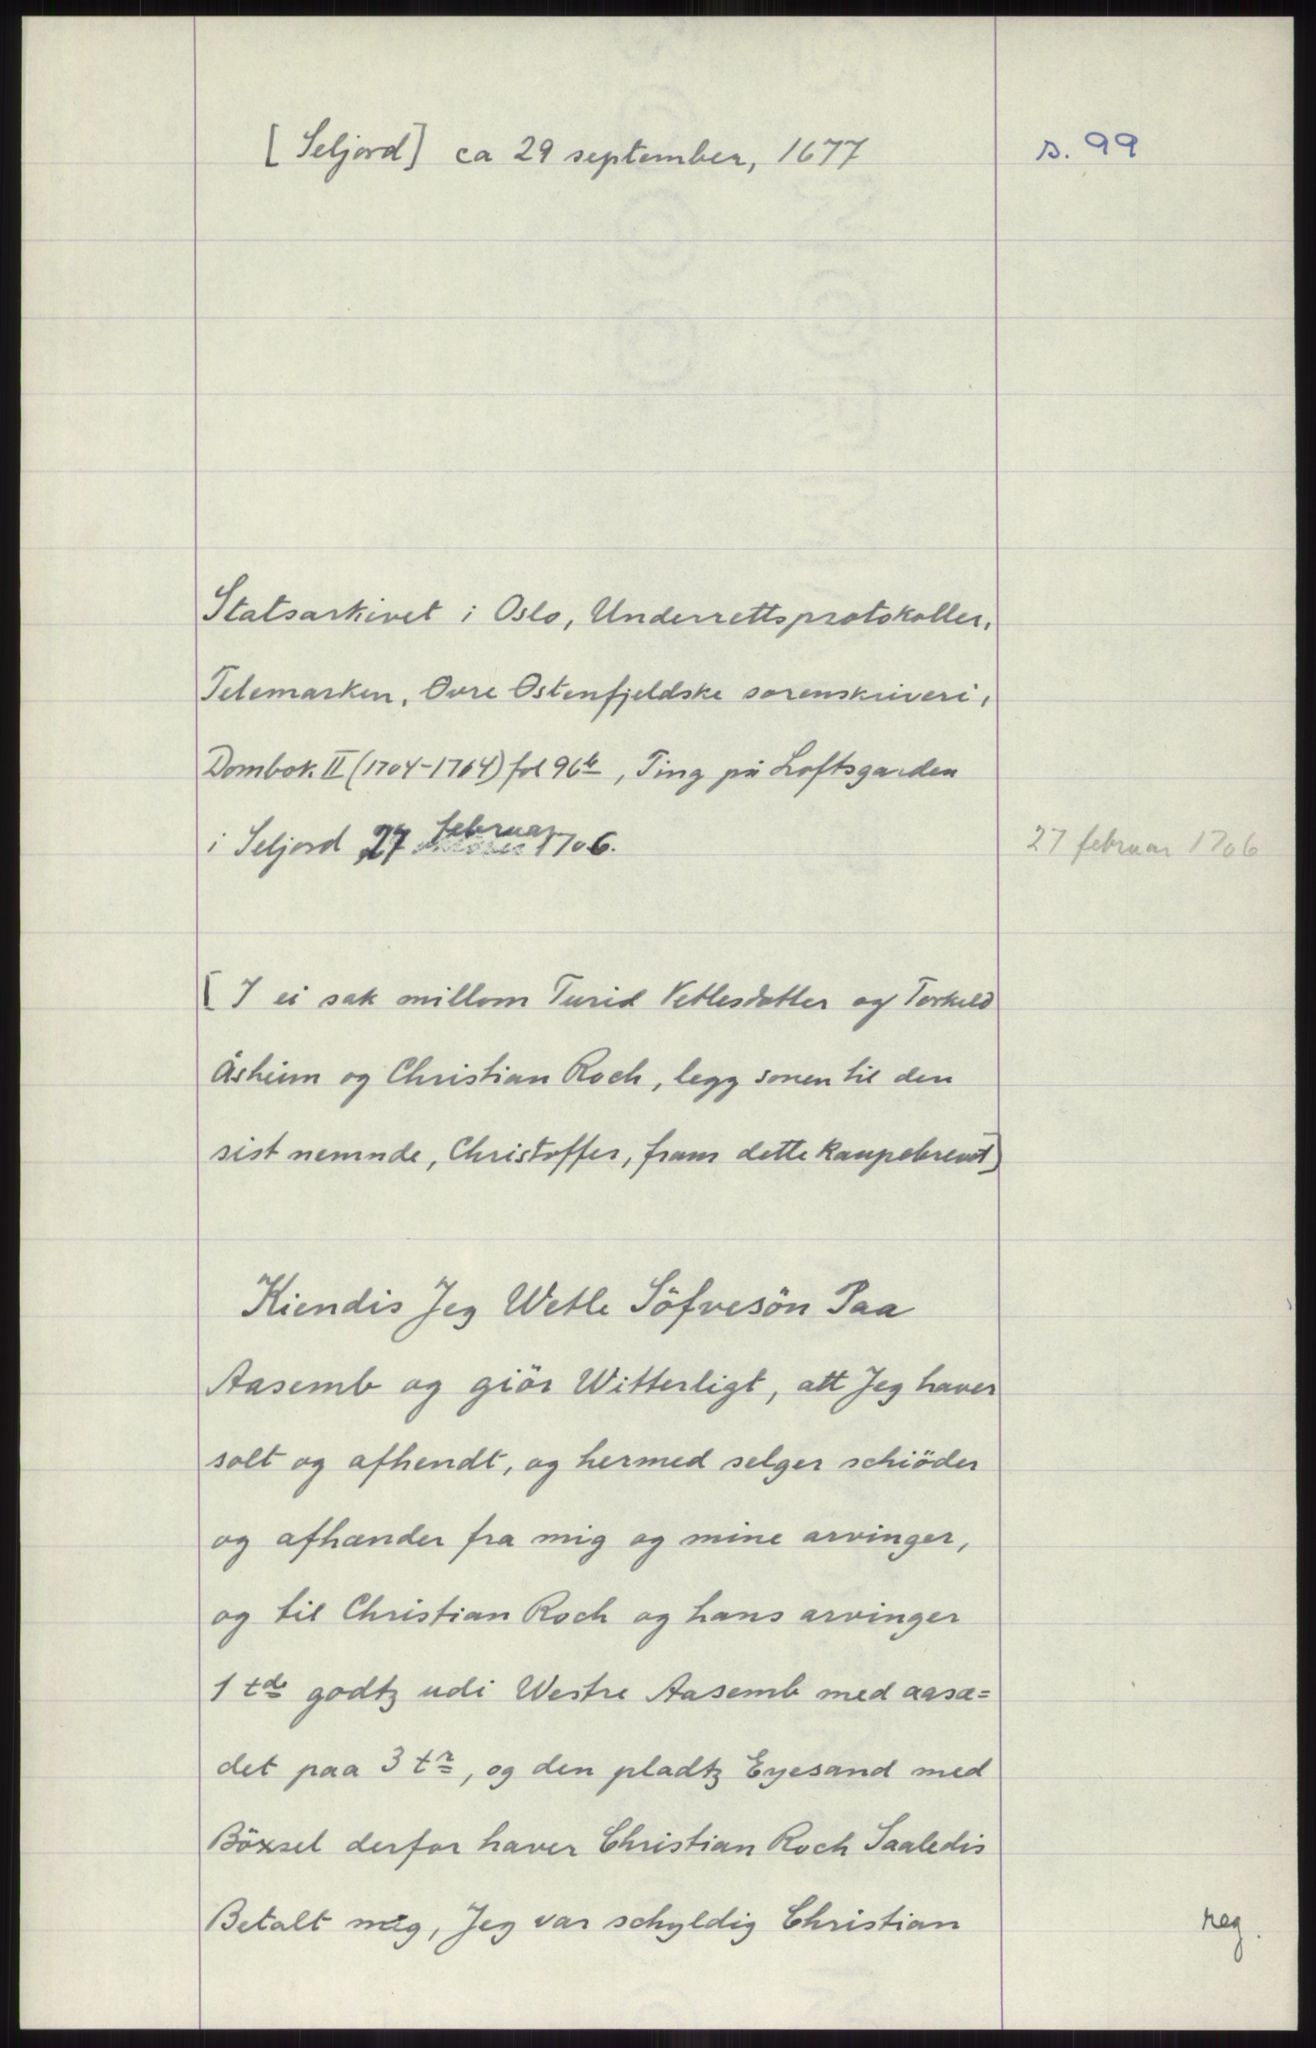 [Seljord] ca 29 september, 1677
s. 99
Statsarkivet i Oslo, Underrettsprotokoller,
Telemarken, Øvre Østenfjeldske sorenskriveri,
Dombok II (1704-1764) fol 96b, Ting på Loftsgarden
i Seljord 27 februar 1706.
27 februar 1706
[I ei sak millom Turid Vetlesdotter og Torkeld
Åsheim og Christian Roch, legg sonen til den
sist nemnde, Christoffer, fram dette kaupebrevet]
Kiendis Jeg Wetle Söfvesön Paa
Aasemb og giör Witterligt, att Jeg haver
solt og afhendt, og hermed selger schiöder
og afhænder fra mig og mine arvinger,
og til Christian Roch og hans arvinger
1 tde godtz udi Westre Aasemb med aasæ=
det paa 3 tr, og den pladtz Eyesand med
Böxsel derfor haver Christian Roch Saaledis
Betalt mig, Jeg var schyldig Christian
reg.